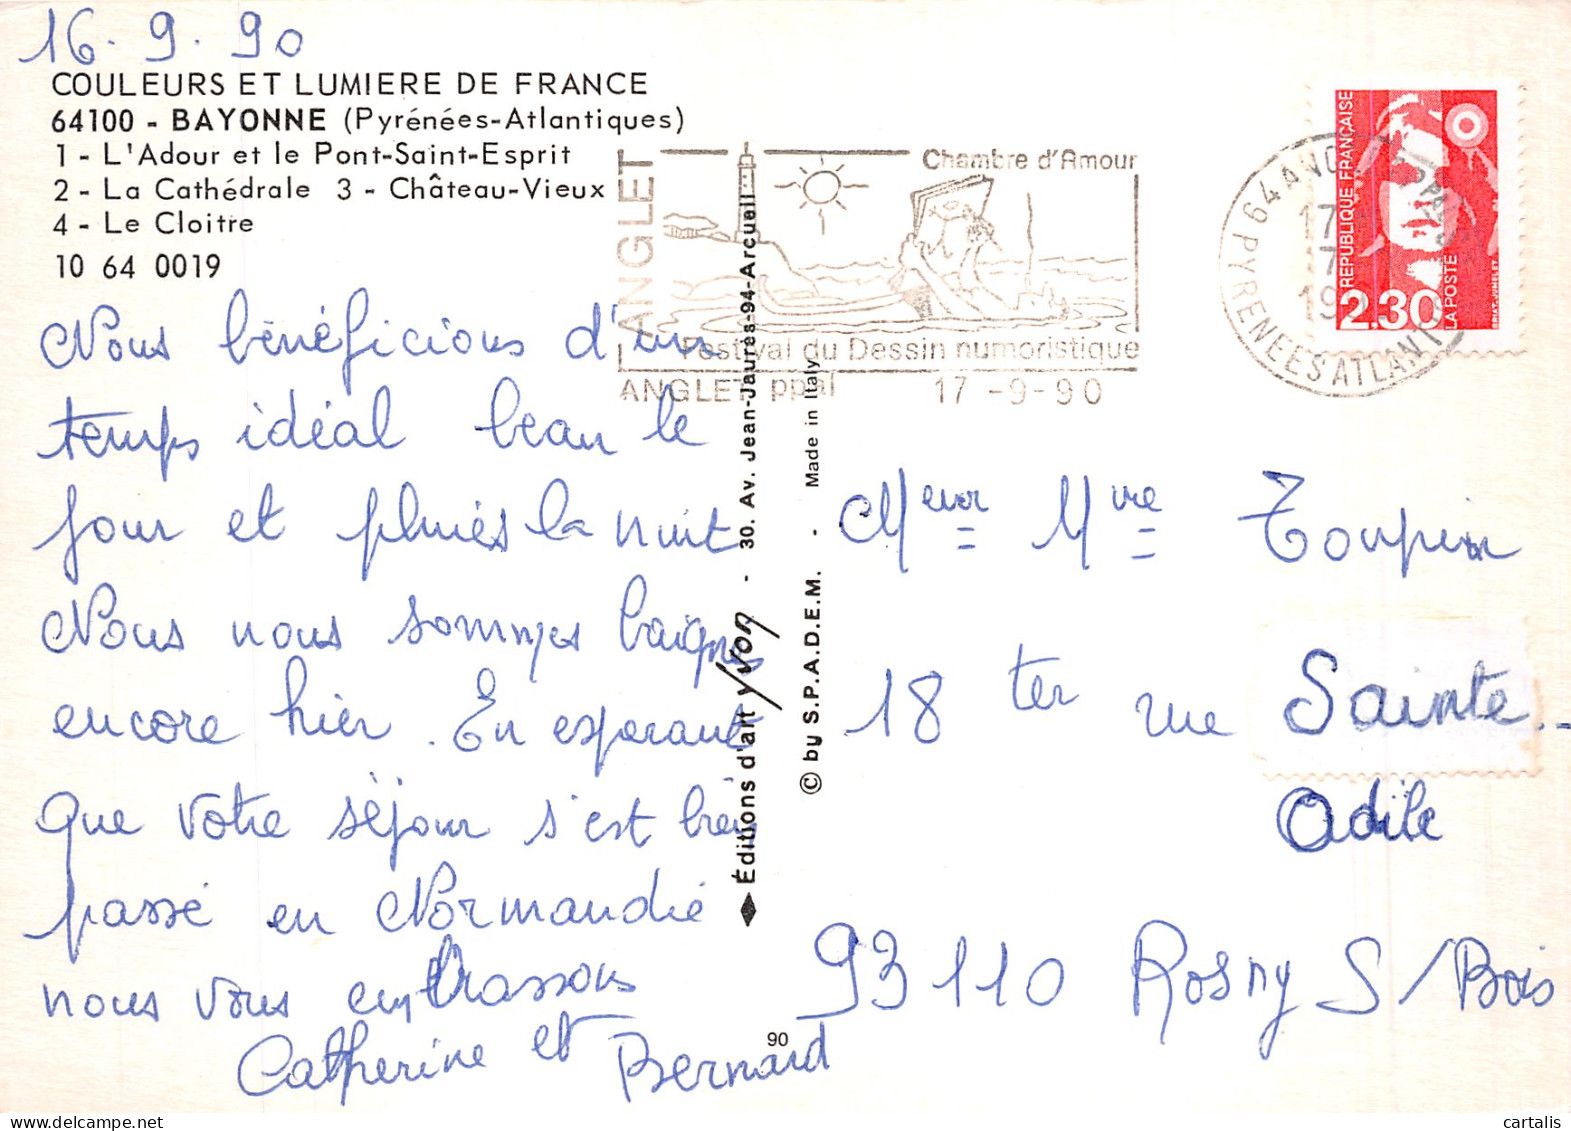 16.9.90
COULEURS ET LUMIERE DE FRANCE
64100 - BAYONNE (Pyrénées-Atlantiques)
1 - L'Adour et le Pont-Saint-Esprit
2 - La Cathédrale 3 - Château-Vieux
4 - Le Cloitre
10 64 0019
Nous bénéficions d'un
temps idéal beau le
jour et pluies la nuit
Nous nous sommes baignés
encore hier. En esperant
que votre séjour s'est bien
passé en Normandie
nous vous embrassons
Catherine et Bernard
ANGLET
Chambre d'Amour
Festival du Dessin humoristique
ANGLET ppal 17-9-90
64 ANGLET PPAL
PYRENEES ATLANTIQUES
REPUBLIQUE FRANÇAISE
2.30
LA POSTE
BRIAT-JUMELET
◆ Éditions d'art Yvon - 30. Av. Jean-Jaurès-94-Arcueil
© by S.P.A.D.E.M. - Made in Italy
Meur Mme Toupin
18 ter rue Sainte-
Odile
93110 Rosny S/Bois
90
cartalis